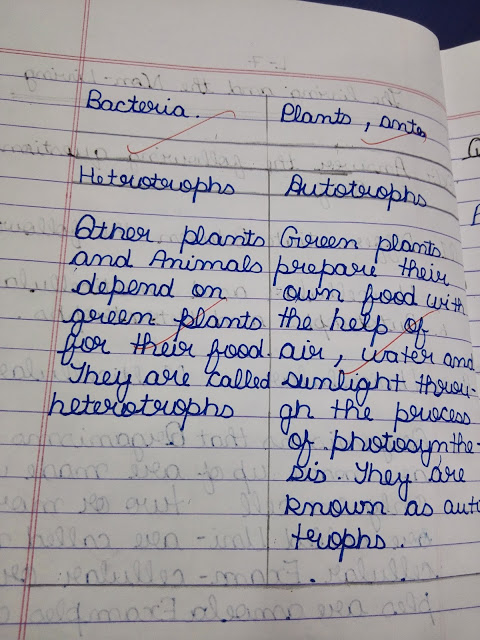 Bacteria.
Plants, ants
Hetrotrophs
Autotrophs
Other plants
and Animals
depend on
green plants
for their food.
They are called
heterotrophs
Green plants
prepare their
own food with
the help of
air, water and
sunlight throu-
gh the process
of photosynthe-
sis. They are
known as auto
trophs.